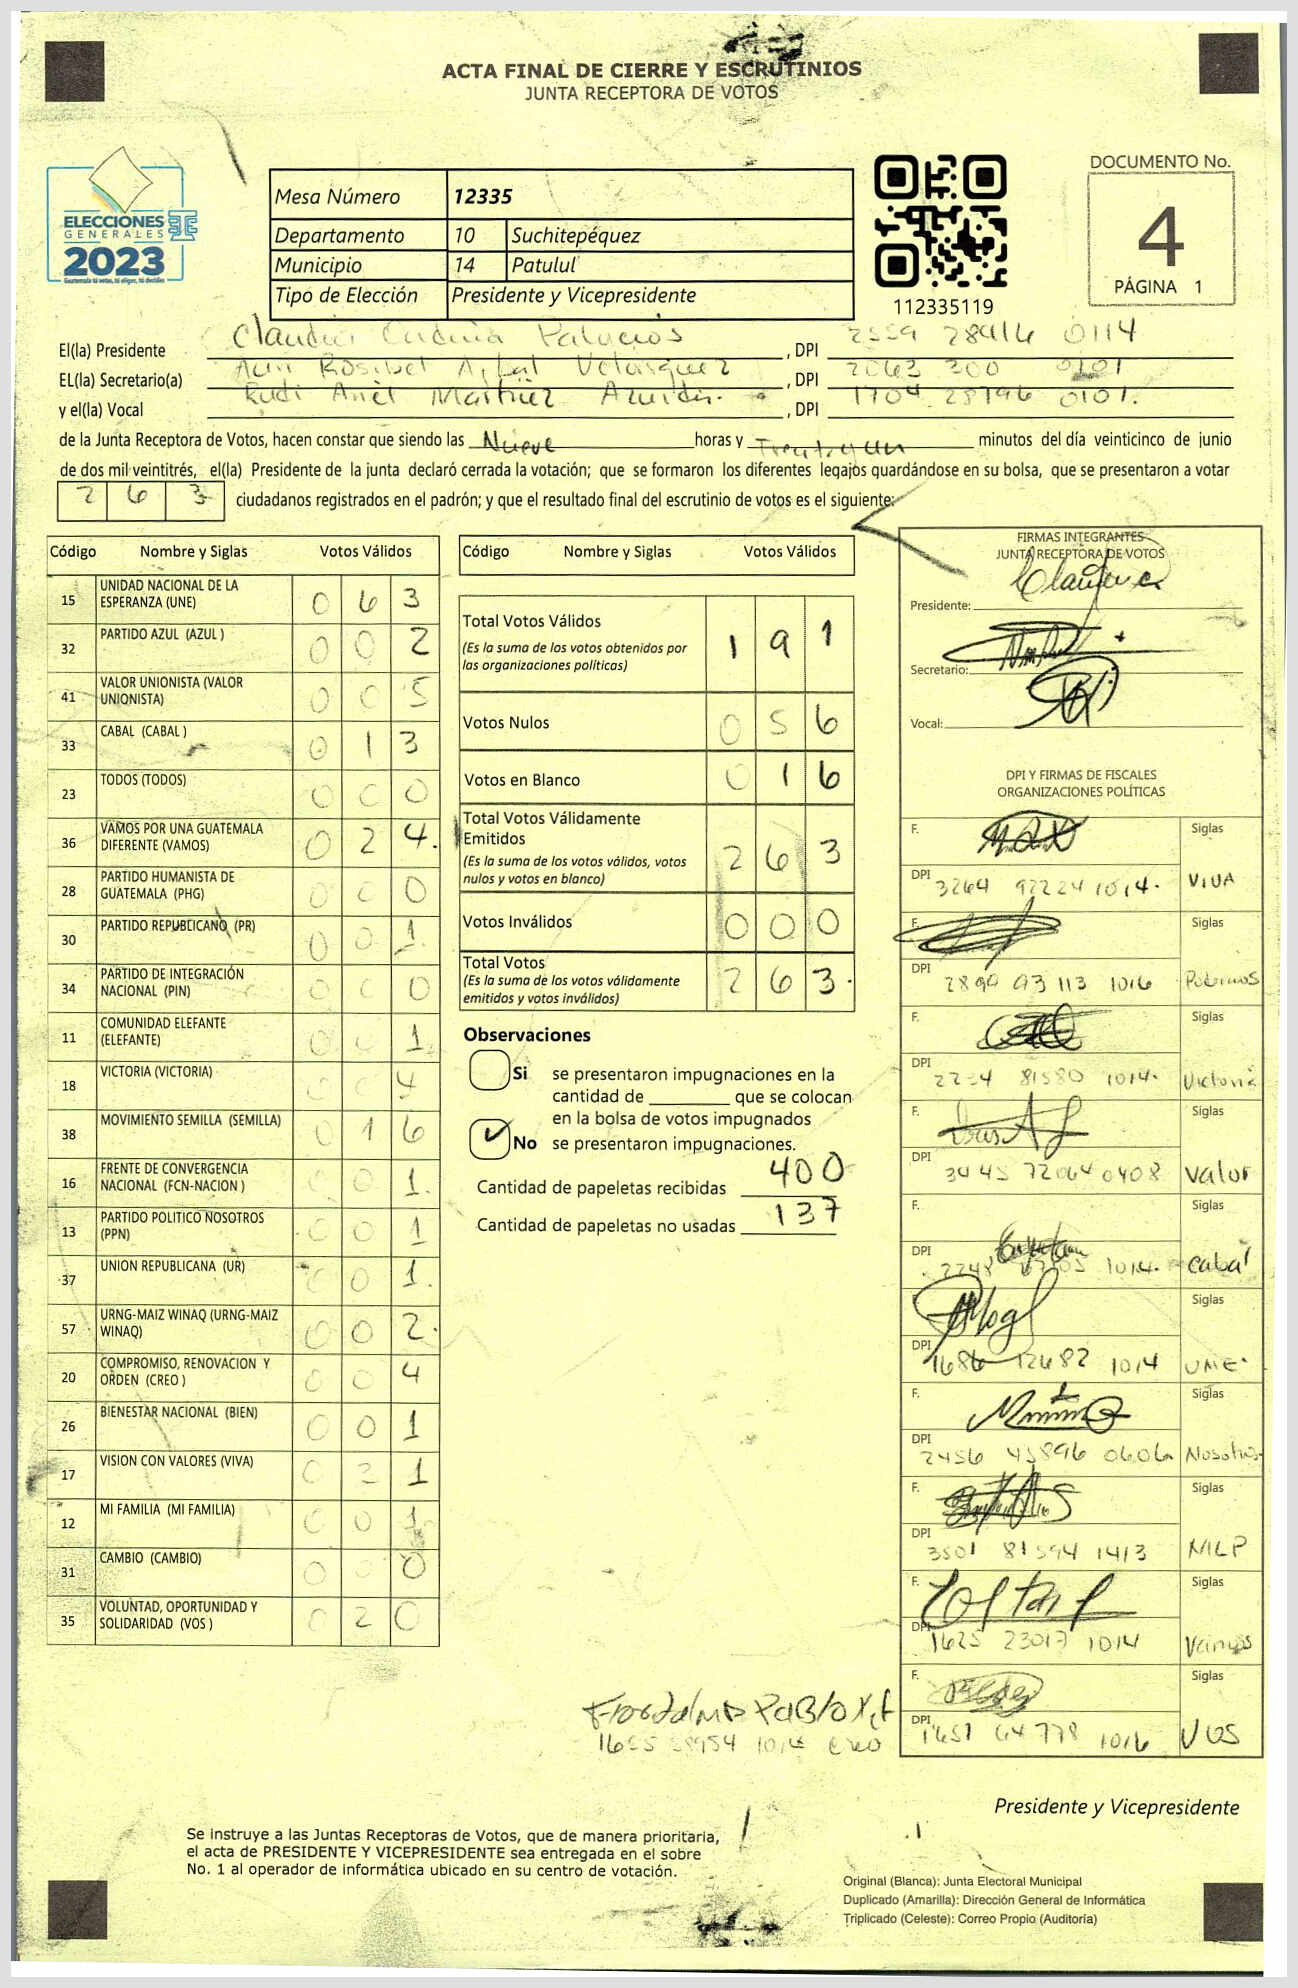 ACTA FINAL DE CIERRE Y ESCRUTINIOS
JUNTA RECEPTORA DE VOTOS
ELECCIONES
GENERALES
2023
Guatemala tú votas, tú eliges, tú decides
Mesa Número 12335
Departamento 10 Suchitepéquez
Municipio 14 Patulul
Tipo de Elección Presidente y Vicepresidente
112335119
DOCUMENTO No.
4
PÁGINA 1
El(la) Presidente Claudia Palacios , DPI 0114
EL(la) Secretario(a) , DPI 2063 300 0101
y el(la) Vocal Rudi Ariel Martinez , DPI 1704 28796 0101.
de la Junta Receptora de Votos, hacen constar que siendo las Nueve horas y minutos del día veinticinco de junio
de dos mil veintitrés, el(la) Presidente de la junta declaró cerrada la votación; que se formaron los diferentes legajos guardándose en su bolsa, que se presentaron a votar
2 6 3 ciudadanos registrados en el padrón; y que el resultado final del escrutinio de votos es el siguiente:
Código Nombre y Siglas Votos Válidos
15 UNIDAD NACIONAL DE LA ESPERANZA (UNE) 0 6 3
32 PARTIDO AZUL (AZUL ) 0 0 2
41 VALOR UNIONISTA (VALOR UNIONISTA) 0 0 5
33 CABAL (CABAL ) 0 1 3
23 TODOS (TODOS) 0 0 0
36 VAMOS POR UNA GUATEMALA DIFERENTE (VAMOS) 0 2 4.
28 PARTIDO HUMANISTA DE GUATEMALA (PHG) 0 0 0
30 PARTIDO REPUBLICANO (PR) 0 0 1
34 PARTIDO DE INTEGRACIÓN NACIONAL (PIN) 0 0 0
11 COMUNIDAD ELEFANTE (ELEFANTE) 0 0 1
18 VICTORIA (VICTORIA) 0 0 4
38 MOVIMIENTO SEMILLA (SEMILLA) 0 1 6
16 FRENTE DE CONVERGENCIA NACIONAL (FCN-NACION ) 0 0 1.
13 PARTIDO POLITICO NOSOTROS (PPN) 0 0 1
37 UNION REPUBLICANA (UR) 0 0 1.
57 URNG-MAIZ WINAQ (URNG-MAIZ WINAQ) 0 0 2.
20 COMPROMISO, RENOVACION Y ORDEN (CREO ) 0 0 4
26 BIENESTAR NACIONAL (BIEN) 0 0 1
17 VISION CON VALORES (VIVA) 0 3 1
12 MI FAMILIA (MI FAMILIA) 0 0 1
31 CAMBIO (CAMBIO) 0 0 0
35 VOLUNTAD, OPORTUNIDAD Y SOLIDARIDAD (VOS ) 0 2 0
Código Nombre y Siglas Votos Válidos
Total Votos Válidos 1 9 1
(Es la suma de los votos obtenidos por
las organizaciones políticas)
Votos Nulos 0 5 6
Votos en Blanco 0 1 6
Total Votos Válidamente
Emitidos 2 6 3
(Es la suma de los votos válidos, votos
nulos y votos en blanco)
Votos Inválidos 0 0 0
Total Votos 2 6 3.
(Es la suma de los votos válidamente
emitidos y votos inválidos)
Observaciones
Si se presentaron impugnaciones en la
cantidad de ________ que se colocan
en la bolsa de votos impugnados
No se presentaron impugnaciones.
Cantidad de papeletas recibidas 400
Cantidad de papeletas no usadas 137
FIRMAS INTEGRANTES
JUNTA RECEPTORA DE VOTOS
Presidente:
Secretario:
Vocal:
DPI Y FIRMAS DE FISCALES
ORGANIZACIONES POLÍTICAS
F. Siglas
DPI 3264 92224 1014. VIVA
F. Siglas
DPI 113 1016
F. Siglas
DPI 81580 1014. Victoria
F. Siglas
DPI 3445 72064 0408 Valor
F. Siglas
DPI 2248 1014. cabal
F. Siglas
DPI 1686 12682 1014 UNE.
F. Siglas
DPI 2456 45896 0606 Nosotros
F. Siglas
DPI 3501 81594 1413 MLP
F. Siglas
DPI 1625 23017 1014 Vamos
F. Siglas
DPI 1651 64 778 1016 VOS
PABLO
1655 58954 1014 creo
Presidente y Vicepresidente
Se instruye a las Juntas Receptoras de Votos, que de manera prioritaria,
el acta de PRESIDENTE Y VICEPRESIDENTE sea entregada en el sobre
No. 1 al operador de informática ubicado en su centro de votación.
Original (Blanca): Junta Electoral Municipal
Duplicado (Amarilla): Dirección General de Informática
Triplicado (Celeste): Correo Propio (Auditoría)